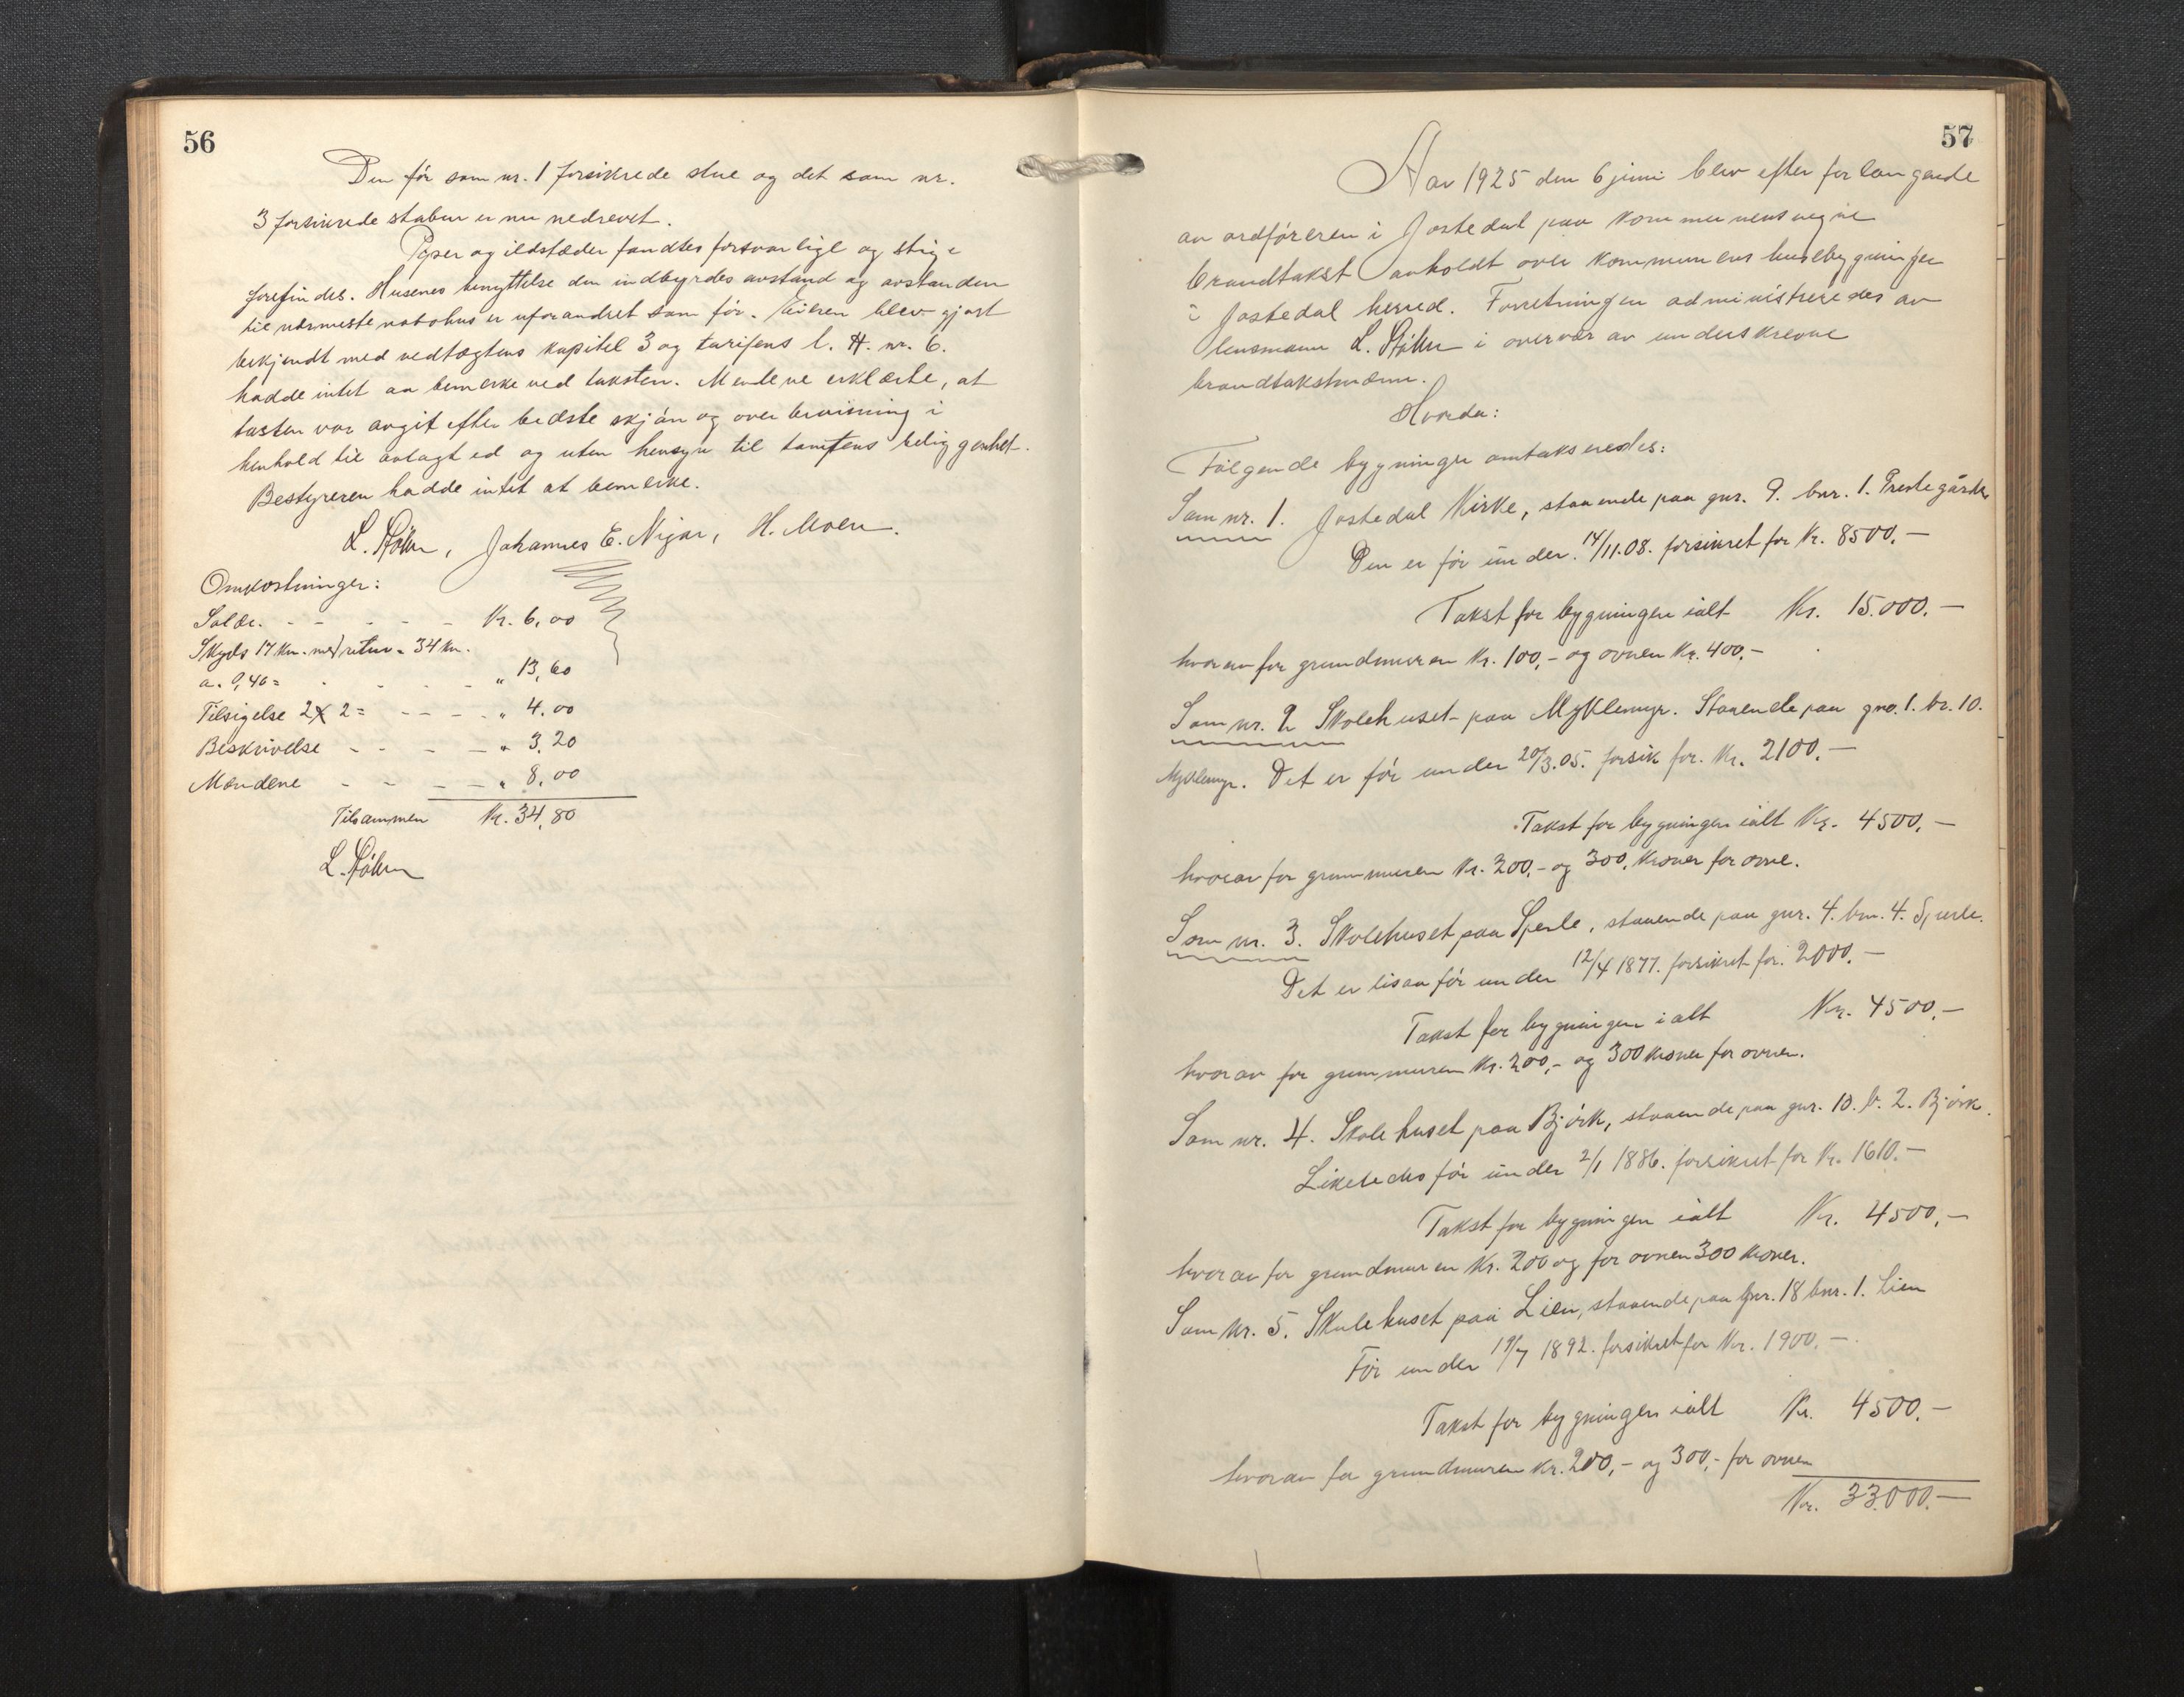 56
Den før som nr. 1 forsikrede stue og det som nr.
3 forsikrede stabur er nu nedrevet.
Piper og ildstæder fandtes forsvarlige og stige
forefindes. Husenes benyttelse den indbyrdes avstand og avstanden
til nærmeste nabohus er uforandret som før. Eieren blev gjort
bekjendt med vedtægtens kapitel 3 og tarifens l. H. nr. 6.
hadde intet aa bemerke ved taksten. Mændene erklærte, at
taksten var avgit efter bedste skjøn og overbevisning i
henhold til avlagt ed og uten hensyn til tomtens beliggenhet.
Bestyreren hadde intet at bemerke.
L. Røhn, Johannes E. Nigar, H. Moen.
Omkostninger:
Salær. - - - - - Kr. 6,00
Skyds 17 km. med retur = 34 km.
a. 0,40 = - - - - " 13,60
Tilsigelse 2 x 2 = - - - - " 4.00
Beskrivelse - - - - " 3,20
Mændene - - - - " 8,00
Tilsammen Kr. 34,80
L. Røhn
57
Aar 1925 den 6 juni blev efter forlangende
av ordføreren i Jostedal paa kommunens vegne
brandtakst avholdt over kommunens husebygninger
i Jostedal herred. Forretningen administreredes av
lensmann L. Røhn i overvær av underskrevne
brandtakstmænn.
Hvorda:
Følgende bygninger omtakseredes:
Som nr. 1. Jostedal Kirke, staaende paa gnr. 9. bnr. 1. Prestegården
Den er før under 14/11.08. forsikret for Kr. 8500.-
Takst for bygningen ialt Kr. 15.000.-
hvorav for grundmuren Kr. 100,- og ovnen Kr. 400,-
Som nr. 2 Skolehuset paa Myklemyr. Staaende paa gno. 1. br. 10.
Myklemyr. Det er før under 20/3.05. forsik for. Kr. 2100.-
Takst for bygningen ialt Kr. 4500,-
hvorav for grunmuren Kr. 200,- og 300, kroner for ovne.
Som nr. 3. Skolehuset paa Sperle, staaende paa gnr. 4. bnr. 4. Sperle.
Det er lisaa før under 12/4 1877. forsikret for. 2000.-
Takst for bygningen ialt Kr. 4500,-
hvorav for grunmuren Kr. 200,- og 300 kroner for ovnen.
Som nr. 4. Skolehuset paa Bjørk, staaende paa gnr. 10. b. 2. Bjørk.
Likeledes før under 2/1 1886. forsikret for Kr. 1610.-
Takst for bygningen ialt Kr. 4500,-
hvorav for grundmuren Kr. 200 og for ovnen 300 kroner.
Som nr. 5. Skulehuset paa Lien, staaende paa gnr. 18 bnr. 1. Lien
Før under 19/7 1892. forsikret for Kr. 1900.-
Takst for bygningen ialt Kr. 4500.-
hvorav for grundmuren Kr. 200,- og 300,- for ovnen
Kr. 33.000.-